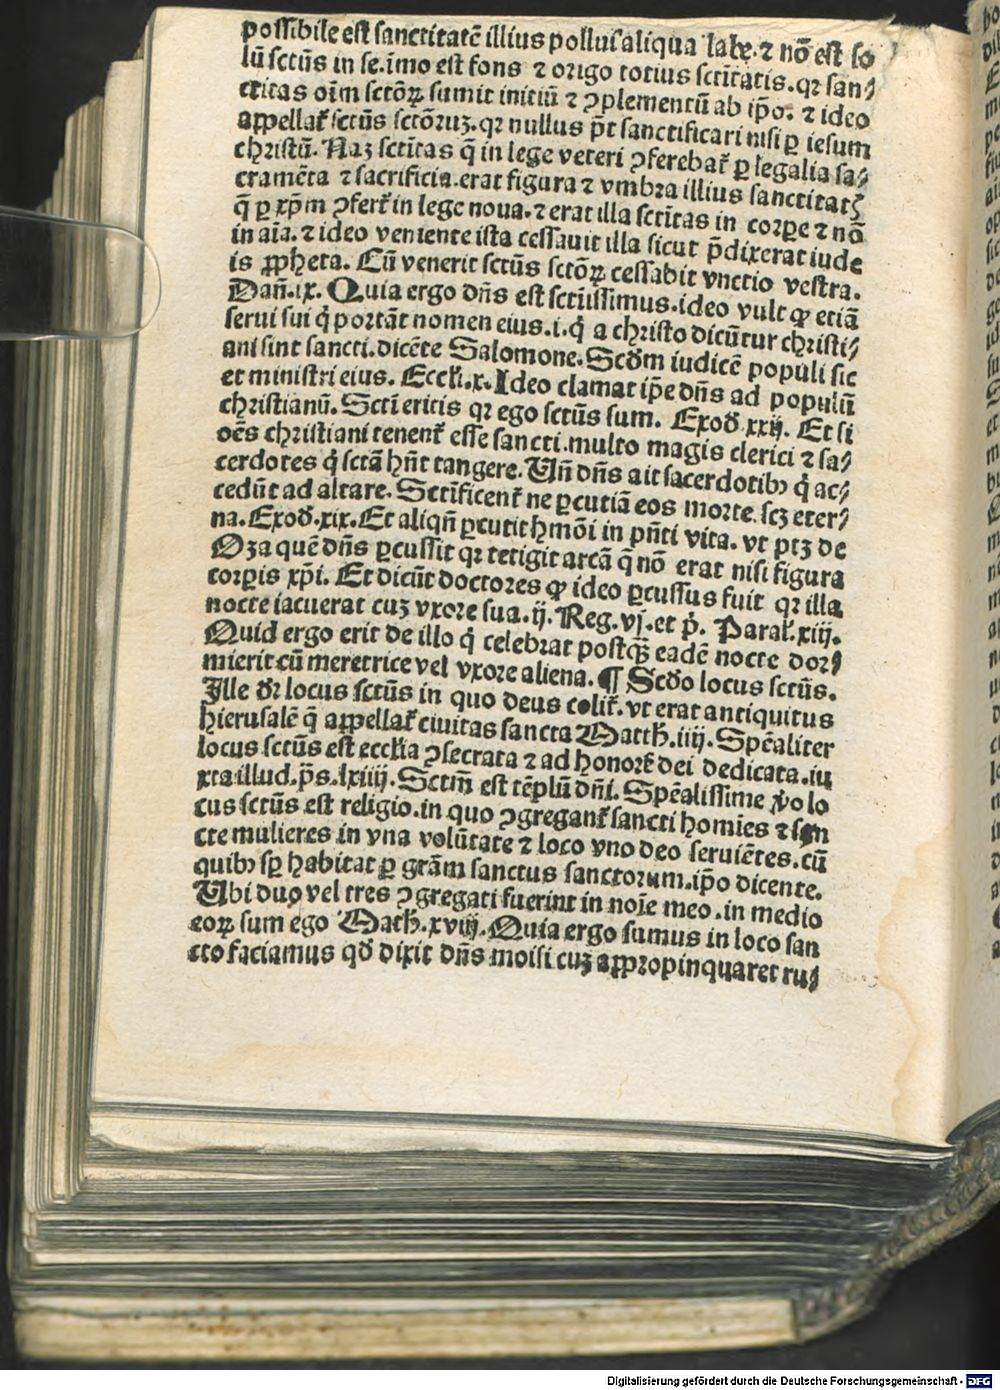 possibile est sanctitatē illius pollui aliqua labe. ⁊ nō est so
lū sctūs in se. imo est fons ⁊ origo totius sctītatis. qꝛ san⸗
ctitas oīm sctōꝝ sumit initiū ⁊ ↄplementū ab ip̄o. ⁊ ideo
appellat᷑ sctūs sctōruꝫ. qꝛ nullus pōt sanctificari nisi ꝑ iesum
christū. Naꝫ sctītas q̄ in lege veteri ↄferebat᷑ ꝑ legalia sa⸗
cramēta ⁊ sacrificia. erat figura ⁊ vmbra illius sanctitatꝭ
q̄ ꝑ xp̄m ↄfert᷑ in lege noua. ⁊ erat illa sctītas in corꝑe ⁊ nō
in aīa. ⁊ ideo veniente ista cessauit illa sicut p̄dixerat iude
is ꝓpheta. Cū venerit sctūs sctōꝝ cessabit vnctio vestra.
Dań.ix. Quia ergo dn̄s est sctūssimus. ideo vult ꝙ etiā
serui sui q̇ portāt nomen eius .i. q̇ a christo dicūtur christi⸗
ani sint sancti. dicēte Salomone. Scd̄m iudicē populi sic
et ministri eius. Eccłi.x. Ideo clamat ip̄e dn̄s ad populū
christianū. Sctī eritis qꝛ ego sctūs sum. Exod̄ xxij. Et si
oēs christiani tenent᷑ esse sancti. multo magis clerici ⁊ sa⸗
cerdotes q̇ sctā hn̄t tangere. Vn̄ dn̄s ait sacerdotibꝰ q̇ ac⸗
cedūt ad altare. Sctīficent᷑ ne ꝑcutiā eos morte. sꝫ eter⸗
na. Exod̄.xix. Et aliqn̄ ꝑcutit hmōi in pn̄ti vita. vt ptꝫ de
Oza quē dn̄s ꝑcussit qꝛ tetigit arcā q̄ nō erat nisi figura
corꝑis xp̄i. Et dicūt doctores ꝙ ideo ꝑcussus fuit qꝛ illa
nocte iacuerat cuꝫ vxore sua. ij. Reg. vj. et p̄. Parał.xiij.
Quid ergo erit de illo q̇ celebrat postꝙ̄ eadē nocte dor⸗
mierit cū meretrice vel vxore aliena. ¶ Scd̄o locus sctūs.
Ille dr̄ locus sctūs in quo deus colit᷑. vt erat antiquitus
hierusalē q̄ appellat᷑ ciuitas sancta Matth̄.iiij. Spēaliter
locus sctūs est eccłia ↄsecrata ⁊ ad honorē dei dedicata. iu
xta illud. p̄s. lxiiij. Sctm̄ est tēplū dn̄i. Spēalissime ꝟo lo
cus sctūs est religio. in quo ↄgregant᷑ sancti homīes ⁊ san
cte mulieres in vna volūtate ⁊ loco vno deo seruiētes. cū
quibꝰ sꝑ habitat ꝑ grām sanctus sanctorum. ip̄o dicente.
Vbi duo vel tres ↄgregati fuerint in noīe meo. in medio
eoꝝ sum ego Math̄.xviij. Quia ergo sumus in loco san
cto faciamus qd̄ dixit dn̄s moisi cuꝫ appropinquaret ru⸗
Digitalisierung gefördert durch die Deutsche Forschungsgemeinschaft - DFG